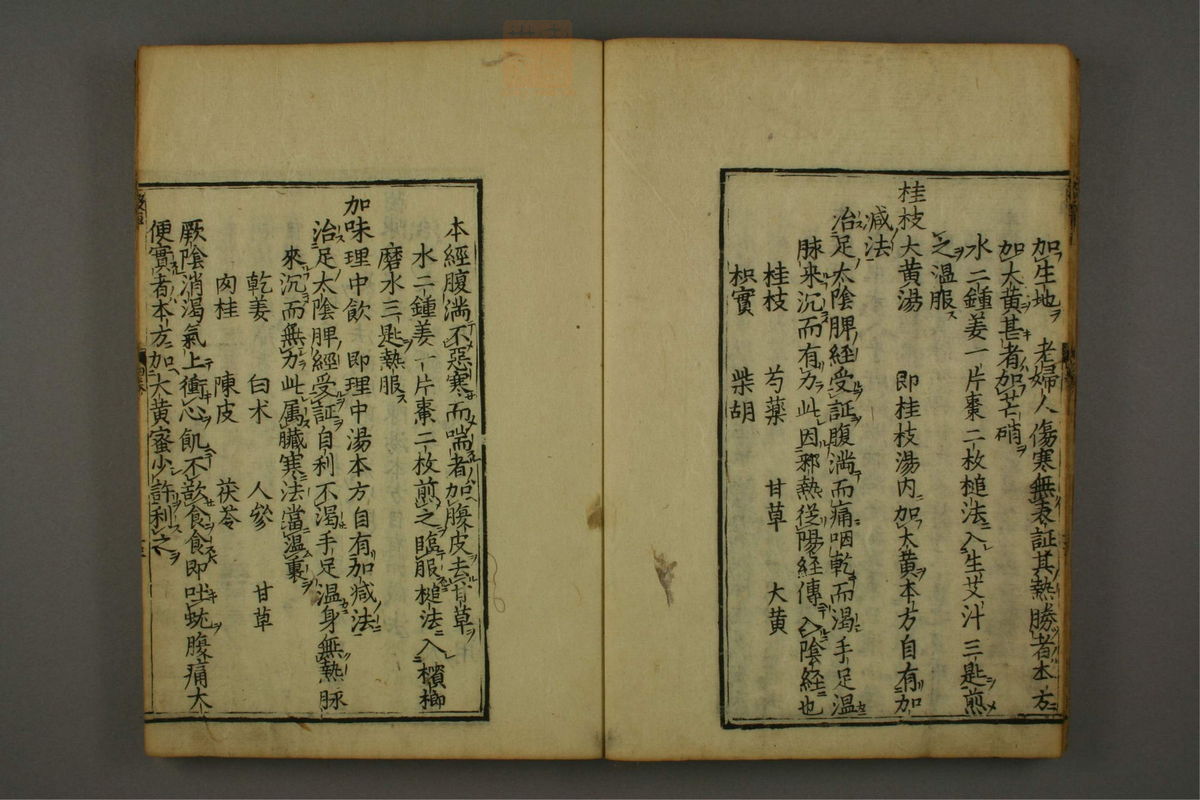 加生地 老婦人傷寒無表証其熱勝者本方
加大黄甚者加芒硝
水二鍾姜一片棗二枚槌法入生艾汁三匙煎
之温服
桂枝大黄湯 即桂枝湯内加大黄本方自有加
減法
治足太陰脾経受証腹満而痛咽乾而渇手足温
脉来沉而有力此因邪熱従陽経傳入陰経也
桂枝 芍藥 甘草 大黄
枳實 柴胡
本經腹満不惡寒而喘者加腹皮去甘草
水二鍾姜一片棗二枚煎之臨服槌法入檳榔
磨水三匙熱服
加味理中飲 即理中湯本方自有加减法
治足太陰脾經受証自利不渇手足温身無熱脉
來沉而無力此属臓寒法當温裏
乾姜 白术 人參 甘草
肉桂 陳皮 茯苓
厥陰消渇氣上衝心飢不飲食食即吐蚘腹痛大
便實者本方加大黄蜜少許利之